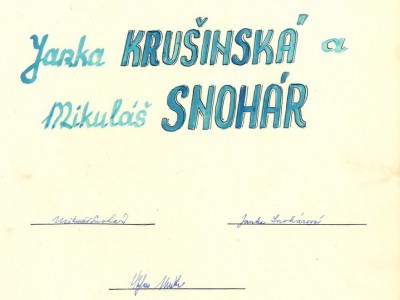 Janka KRUŠINSKÁ a
Mikuláš SNOHÁR
Mikuláš Snohár Janka Snohárová